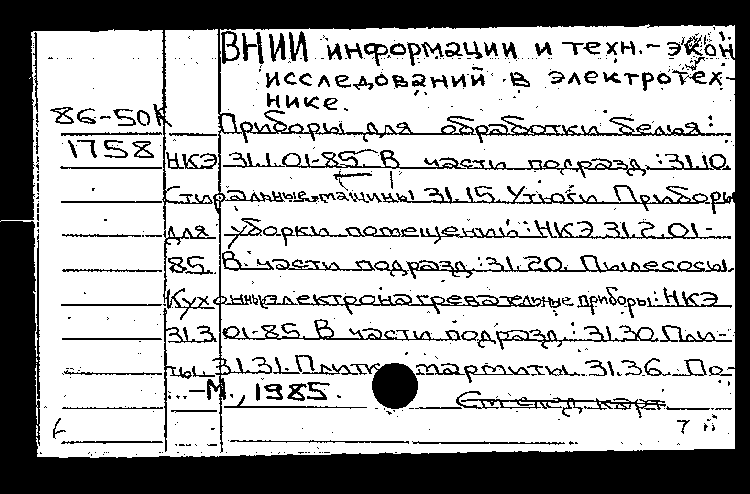 ВНИИ информации и техн.- экон
исследований в электротех-
нике.
86-50К
Приборы для обработки белья:
1758 НКЭ 31.1.01-85. В части подразд.: 31.10.
Стиральные машины 31.15. Утюги Приборы
для уборки помещений: НКЭ 31.2.01-
85. В части подразд.: 31.20. Пылесосы.
Кухонные электронагревательные приборы: НКЭ
31.3.01-85. В части подразд.: 31.30. Пли-
ты. 31.31. Плитки мармиты. 31.36. По-
...-М., 1985.
См след. карт
7 п